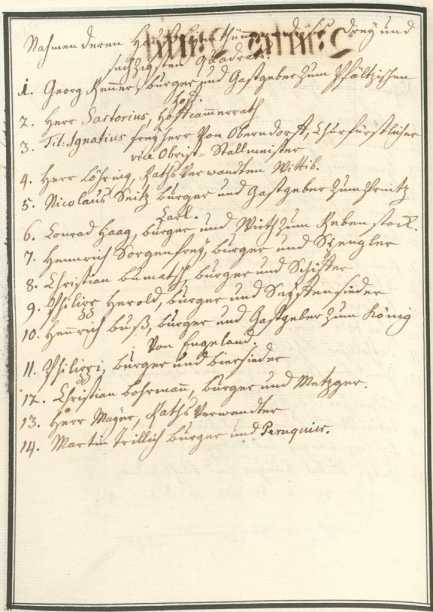 Nahmen deren Hauß drey und
sechzigsten Quadrat.
1. Georg Reiners burger und Gastgeber zum Pfältzischen
Hoff.
2. Herr Sartorius, Hoffcammerrath
3. Tit: Ignatius freyherr Von Oberndorff, Churfürstlicher
vice Obrist-Stallmeister
4. Herr Raths Verwandten Wittib.
5. Nicolaus Seitz burger und Gastgeber zum Printz
Carl.
6. Conrad Haag, burger und Wirth zum Rebenstock.
7. Heinrich Sorgenfrey, burger und Spengler
8. Christian burger und Schiffer
9. Philipp Herold, burger und Seiffensieder
10. Henrich buß, burger und Gastgeber zum König
Von Engeland.
11. burger und biersieder
12. Christian bohrmann, burger und Metzger.
13. Herr Mayer, Raths Verwandter
14. Martin Trillich burger und Peruquier.